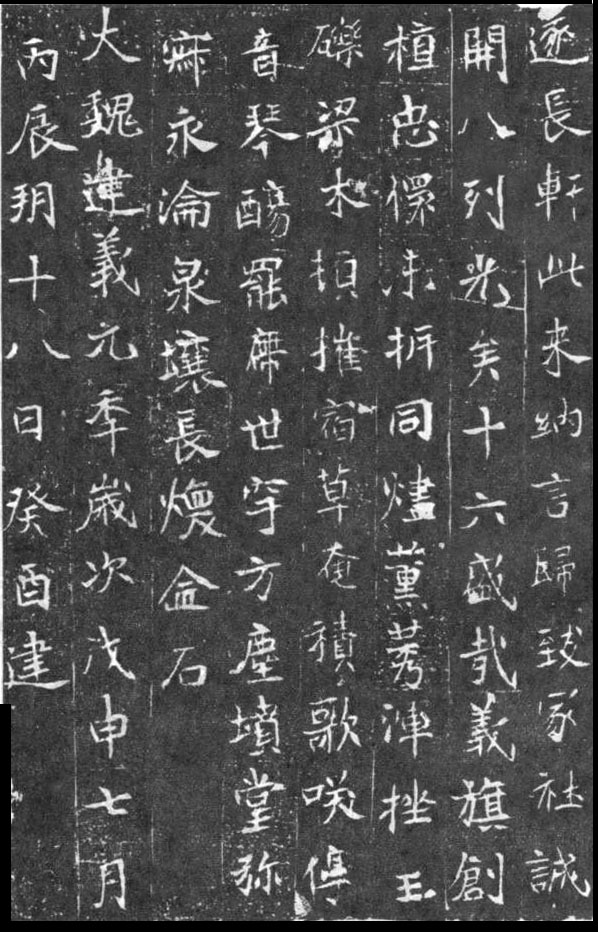 遂長軒此来納言歸致冢社誠
開八列光矣十六盛哉義旗創
植忠僕未拆同燼薰莠渾挫玉
礫梁木損摧宿草奄積歌咲停
音琴醻罷席世穸方塵墳堂弥
寐永淪泉壤長煥金石
大魏建義元年歳次戊申七月
丙辰朔十八日癸酉建